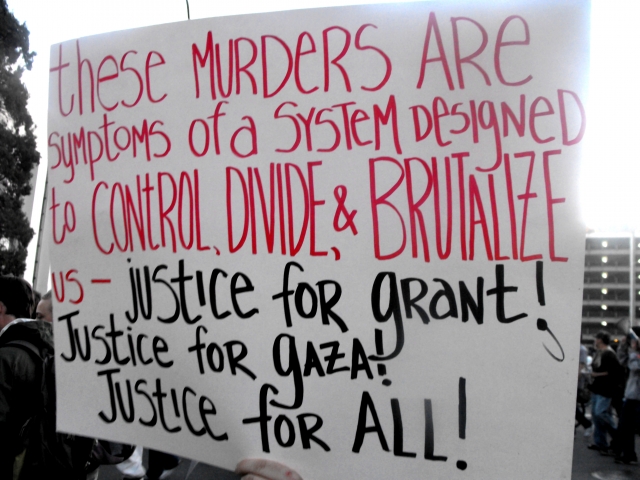 these MURDERS ARE
symptoms of a SYSTEM DESIGNED
to CONtROL, DIVIDE, & BRUTALIZE
us - justice for grant!
Justice for GAZA!
Justice for ALL!